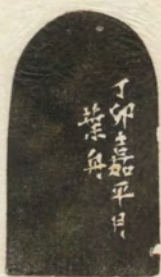 丁卯嘉平月
葉舟